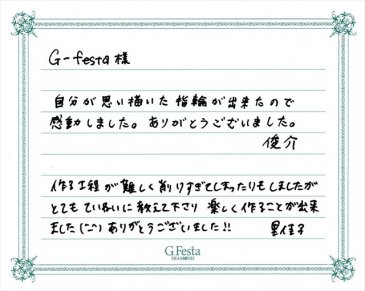 G-festa様
自分が思い描いた指輪が出来たので
感動しました。ありがとうございました。
俊介
作る工程が難しく削りすぎてしまったりもしましたが
とてもていねいに教えて下さり楽しく作ることが出来
ました(^^)ありがとうございました!!
里佳子
G.Festa
DIAMOND